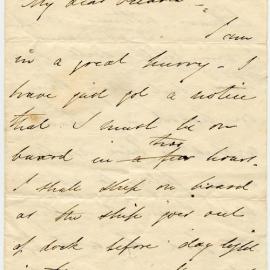 My dear
I am
in a great hurry - I
have just got a notice
that I must be on
board in a few two hours.
I shall sleep on board
as the ship goes out
of dock before day light
in the